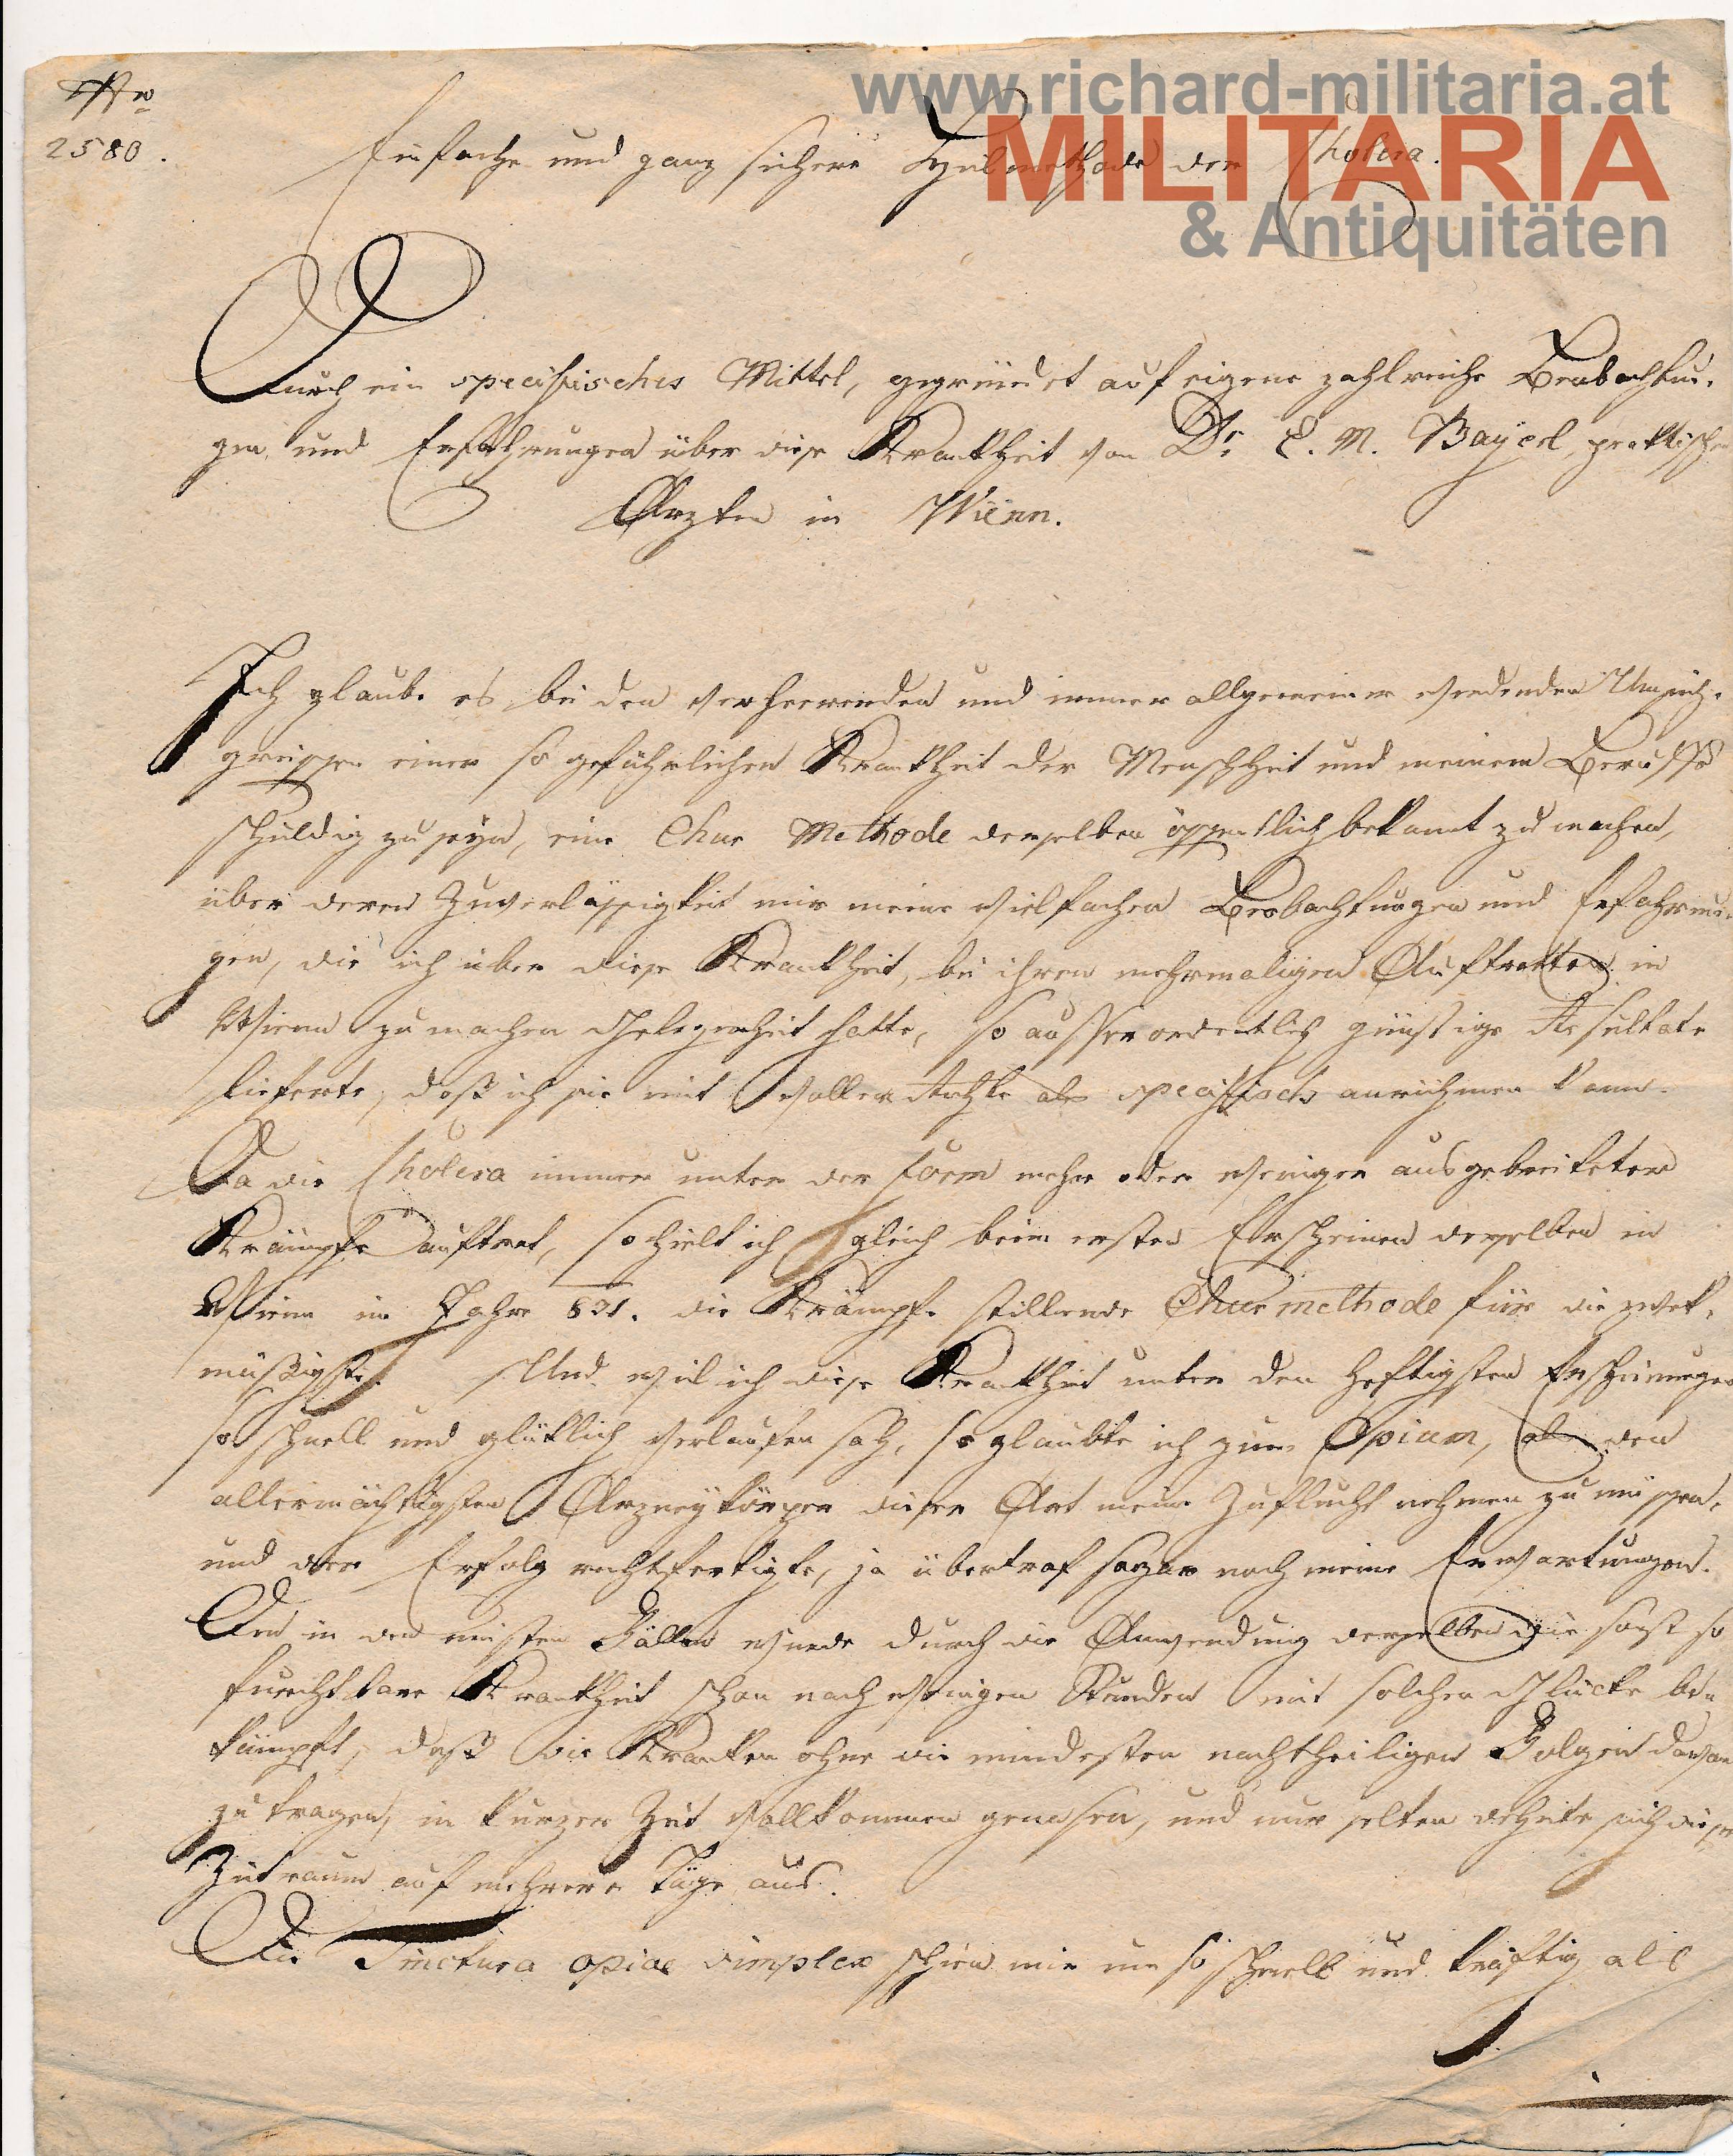 www.richard-militaria.at
MILITARIA
& Antiquitäten
No
2580.
Einfache und ganz sichere Heilmethode der Cholera.
Durch ein specifisches Mittel, gegründet auf eigene zahlreiche Beobachtun-
gen, und Erfahrungen über diese Krankheit von Dr. E. M. Bayerl, praktischen
Arzten in Wienn.
Ich glaube es bei den verheerenden und immer allgemeiner werdenden Umsich-
greiffen einer so gefährlichen Krankheit der Menschheit und meinem Beruffe
schuldig zu seyn, eine Chur Methode derselben öffentlich bekannt zu machen,
über deren Zuverlässigkeit mir meine vielfachen Beobachtungen und Erfahrun-
gen, die ich über diese Krankheit, bei ihren mehrmaligen Auftretten in
Wienn zu machen Gelegenheit hatte, so ausserordentlich günstige Resultate
lieferte, daß ich sie mit vollem Rechte als specifisch anrühmen kann.
Da die Cholera immer unter der Form mehr oder weniger ausgebreiteter
Krämpfe auftrat, so hielt ich gleich beim ersten Erscheinen derselben in
Wienn im Jahre 831. die Krämpfe stillende Churmethode für die zwek-
mäßigste. Und weil ich diese Krankheit unter den heftigsten Erscheinungen
so schnell und glüklich verlaufen sah, so glaubte ich zum Opium, als den
allermächtigsten Arzneykörper dieser Art meine Zuflucht nehmen zu müssen,
und der Erfolg rechtfertigte, ja übertraf sogar noch meine Erwartungen.
Den in den meisten Fällen wurde durch die Anwendung derselben die sonst so
furchtbare Krankheit schon nach wenigen Stunden mit solchen Glücke be-
kämpft, daß die Kranken ohne die mindesten nachtheiligen Folgen davon
zu tragen, in kurzer Zeit vollkommen genesen, und nur selten dehnte sich dieser
Zeitraum auf mehrere Täge aus.
Die Tinctura opiae simplex schien mir um so schnell und kräftig als